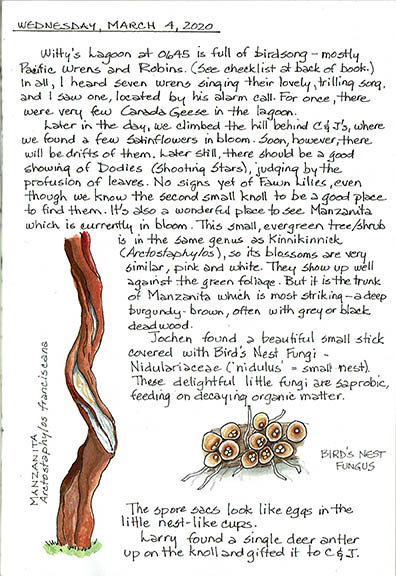 WEDNESDAY, MARCH 4, 2020
Witty's Lagoon at 0645 is full of birdsong – mostly
Pacific Wrens and Robins. (See checklist at back of book.)
In all, I heard seven wrens singing their lovely, trilling song,
and I saw one, located by his alarm call. For once, there
were very few Canada Geese in the lagoon.
Later in the day, we climbed the hill behind C & J's, where
we found a few Satinflowers in bloom. Soon, however, there
will be drifts of them. Later still, there should be a good
showing of Dodies (Shooting Stars), judging by the
profusion of leaves. No signs yet of Fawn Lilies, even
though we know the second small knoll to be a good place
to find them. It's also a wonderful place to see Manzanita
which is currently in bloom. This small, evergreen tree/shrub
is in the same genus as Kinnikinnick
(Arctostaphylos), so its blossoms are very
similar, pink and white. They show up well
against the green foliage. But it is the trunk
of Manzanita which is most striking – a deep
burgundy-brown, often with grey or black
deadwood.
Jochen found a beautiful small stick
covered with Bird's Nest Fungi –
Nidulariaceae ('nidulus' = small nest).
These delightful little fungi are saprobic,
feeding on decaying organic matter.
MANZANITA
Arctostaphylos franciscana
BIRD'S NEST
FUNGUS
The spore sacs look like eggs in the
little nest-like cups.
Larry found a single deer antler
up on the knoll and gifted it to C & J.